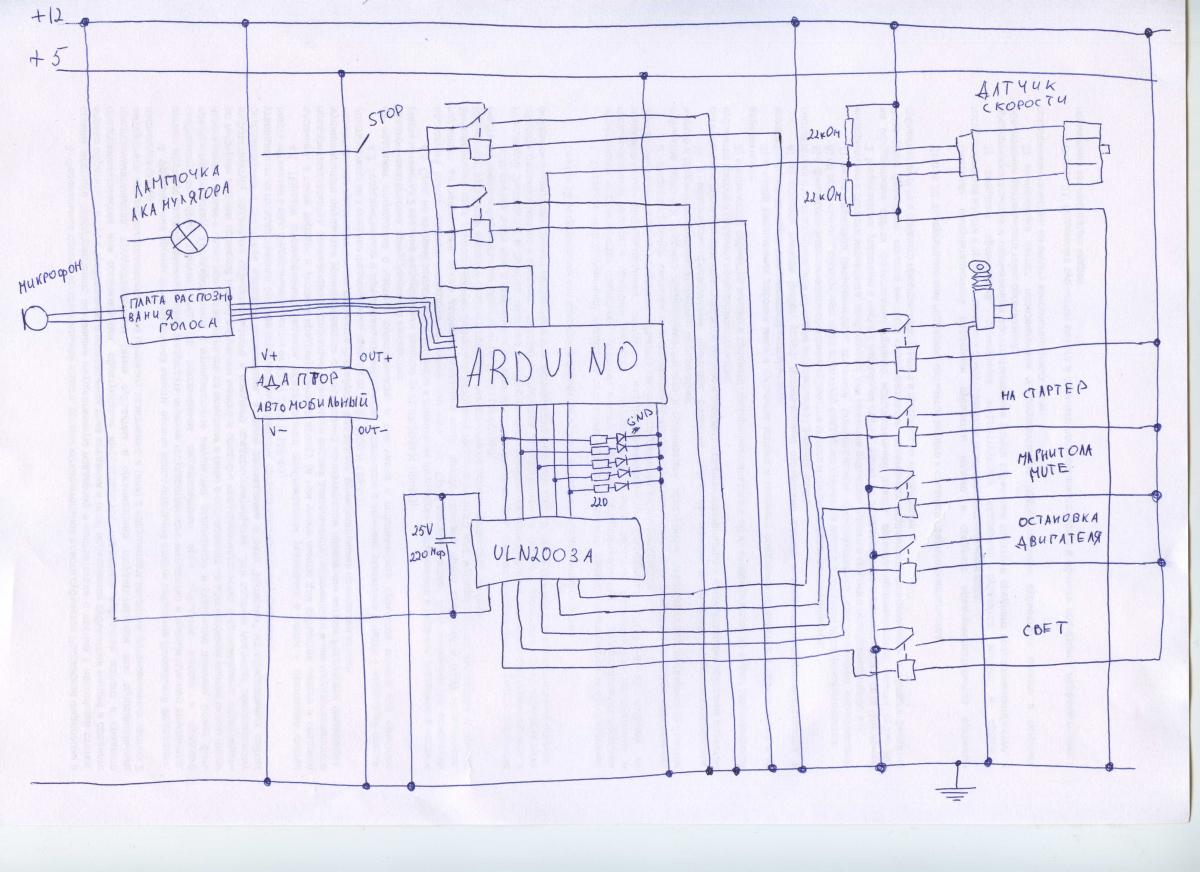 +12
+5
STOP
ДАТЧИК
СКОРОСТИ
22кОм
22кОм
ЛАМПОЧКА
АКАМУЛЯТОРА
МИКРОФОН
ПЛАТА РАСПОЗНО
ВАНИЯ
ГОЛОСА
V+
OUT+
АДАПТОР
АВТОМОБИЛЬНЫЙ
V-
OUT-
ARDUINO
GND
220
25V
220Мкф
ULN2003A
НА СТАРТЕР
МАГНИТОЛА
MUTE
ОСТАНОВКА
ДВИГАТЕЛЯ
СВЕТ